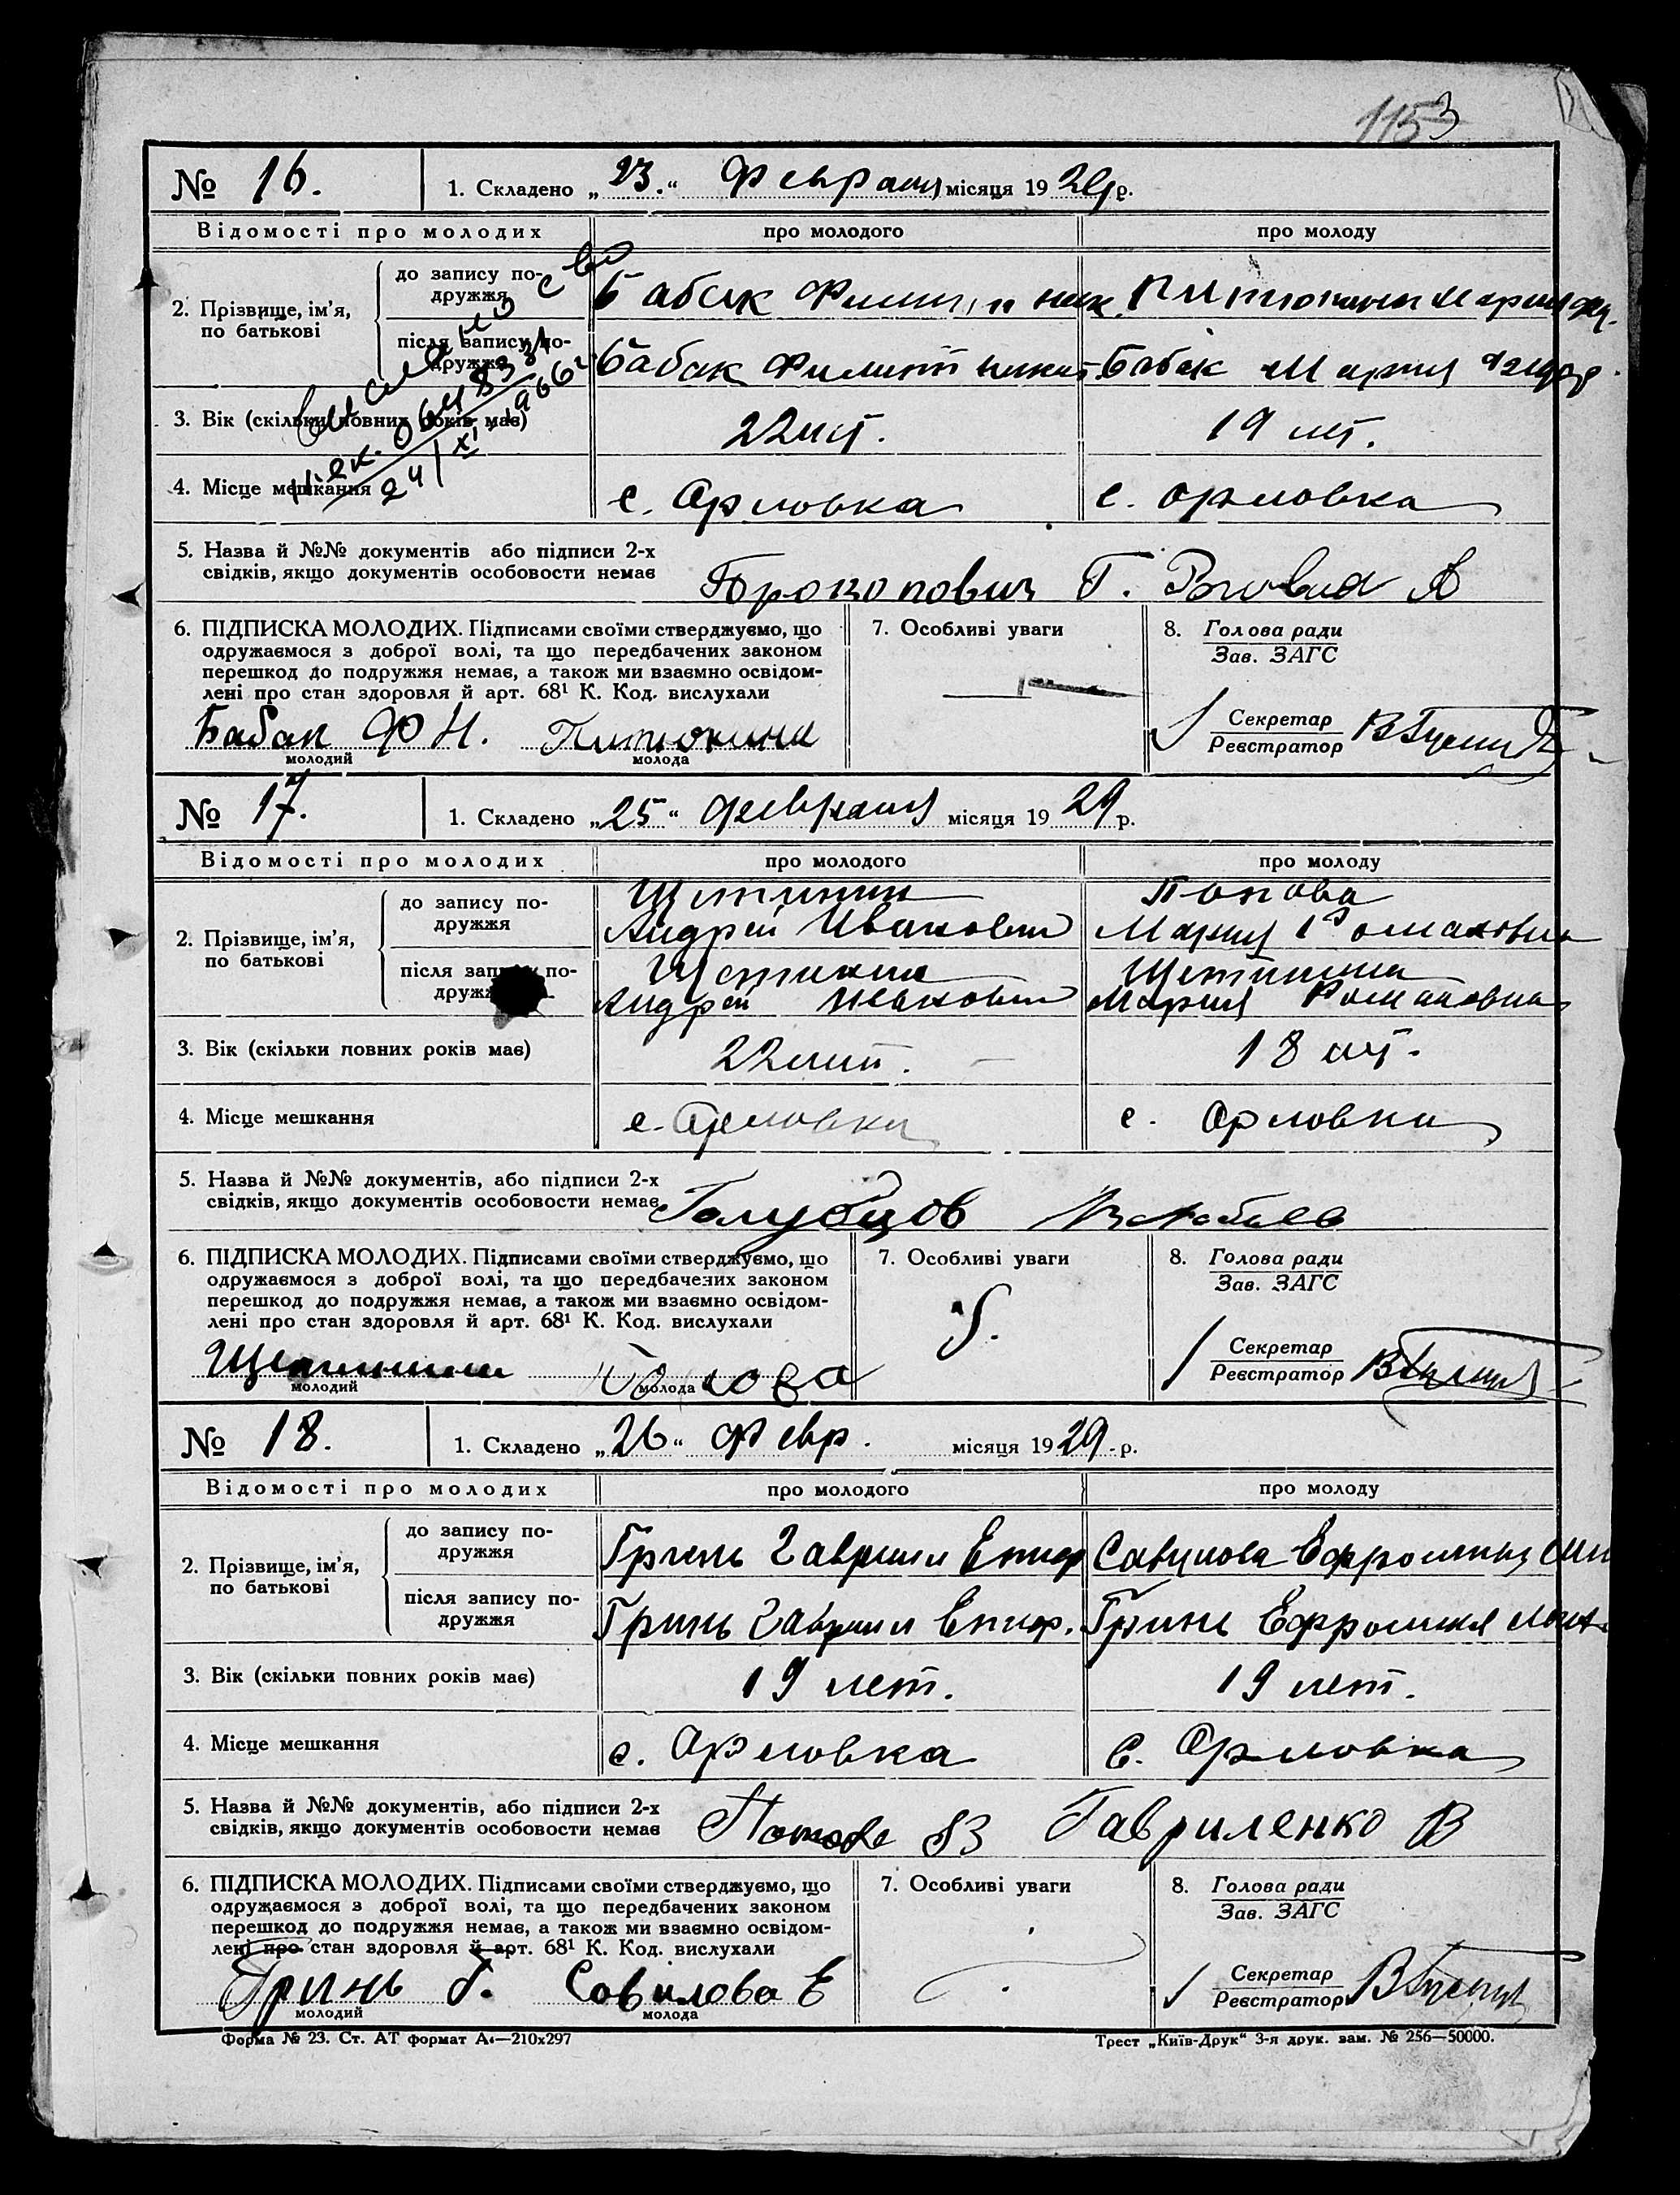 1153
№ 16. 1. Складено „23.“ Февраля місяця 1929 р.
Відомості про молодих про молодого про молоду
2. Прізвище, ім'я, по батькові
до запису подружжя Бабак Филип Ник. Мария
після запису подружжя Бабак Филипп Никит. Бабак Мария Федор.
Выслано с-во
24/XI 1966 г
3. Вік (скільки повних років має) 22 лет. 19 лет.
4. Місце мешкання с. Орловка с. Орловка
5. Назва й №№ документів або підписи 2-х
свідків, якщо документів особовости немає Г.
6. ПІДПИСКА МОЛОДИХ. Підписами своїми стверджуємо, що
одружаємося з доброї волі, та що передбачених законом
перешкод до подружжя немає, а також ми взаємно освідом-
лені про стан здоровля й арт. 68¹ К. Код. вислухали
7. Особливі уваги
8. Голова ради
Зав. ЗАГС
Секретар
Реєстратор
Бабак Ф Н. Питюкина
молодий молода
№ 17. 1. Складено „25“ февраля місяця 1929 р.
Відомості про молодих про молодого про молоду
2. Прізвище, ім'я, по батькові
до запису подружжя Щетинин Андрей Иванович Попова Мария Романовна
після запису подружжя Щетинин Андрей Иванович Щетинина Мария Романовна
3. Вік (скільки повних років має) 22 лет. 18 лет.
4. Місце мешкання с. Орловка с. Орловка
5. Назва й №№ документів, або підписи 2-х
свідків, якщо документів особовости немає Голубцов
6. ПІДПИСКА МОЛОДИХ. Підписами своїми стверджуємо, що
одружаємося з доброї волі, та що передбачених законом
перешкод до подружжя немає, а також ми взаємно освідом-
лені про стан здоровля й арт. 68¹ К. Код. вислухали
7. Особливі уваги
8. Голова ради
Зав. ЗАГС
Секретар
Реєстратор
Щетинин Попова
молодий молода
№ 18. 1. Складено „26“ Февр. місяця 1929 р.
Відомості про молодих про молодого про молоду
2. Прізвище, ім'я, по батькові
до запису подружжя Гринь Гавриил Епиф Савилова Ефросиния
після запису подружжя Гринь Гавриил Епиф. Гринь Ефросиния
3. Вік (скільки повних років має) 19 лет. 19 лет.
4. Місце мешкання с. Орловка с. Орловка
5. Назва й №№ документів, або підписи 2-х
свідків, якщо документів особовости немає Гавриленко В
6. ПІДПИСКА МОЛОДИХ. Підписами своїми стверджуємо, що
одружаємося з доброї волі, та що передбачених законом
перешкод до подружжя немає, а також ми взаємно освідом-
лені про стан здоровля й арт. 68¹ К. Код. вислухали
7. Особливі уваги
8. Голова ради
Зав. ЗАГС
Секретар
Реєстратор
Гринь Г. Савилова Е
молодий молода
Форма № 23. Ст. АТ формат А₄—210х297 Трест „Київ-Друк“ 3-я друк. зам. № 256—50000.